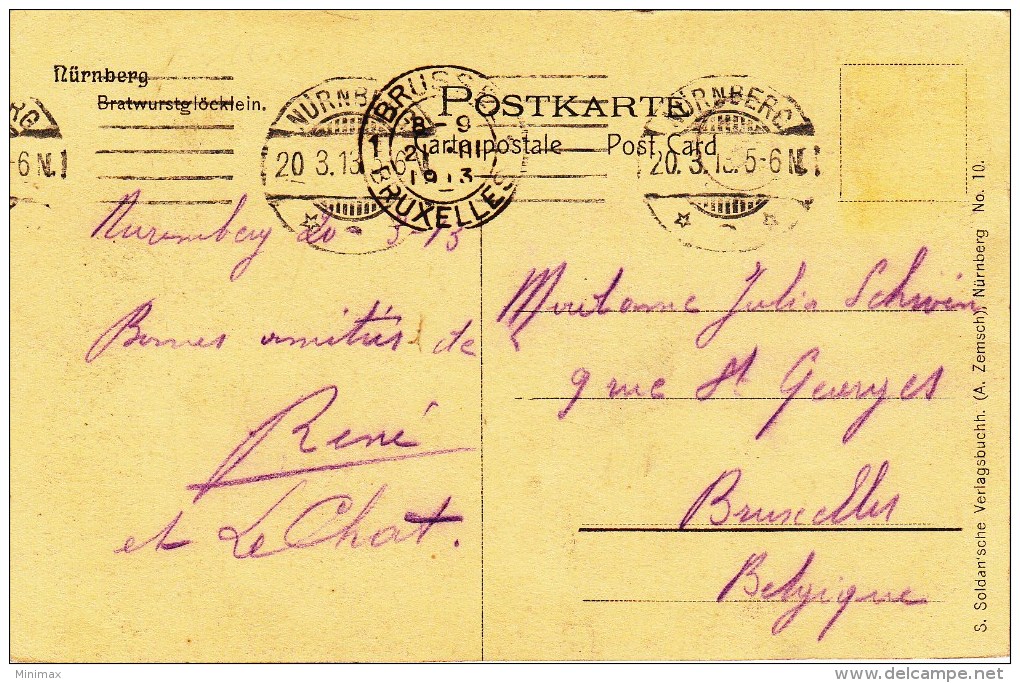 Nürnberg
Bratwurstglöcklein.
POSTKARTE
Carte postale — Post Card
NÜRNBERG
20.3.13.5-6N.
BRUSSEL
8-9
21 III
1913
BRUXELLES
NÜRNBERG
20.3.13.5-6N.
RG
-6N.
Nuremberg 20-3-13
Bonnes amitiés de
René
et Le Chat.
Madame Julia
9 rue St Georges
Bruxelles
Belgique
S. Soldan'sche Verlagsbuchh. (A. Zemsch), Nürnberg No. 10.
Minimax
delcampe.net